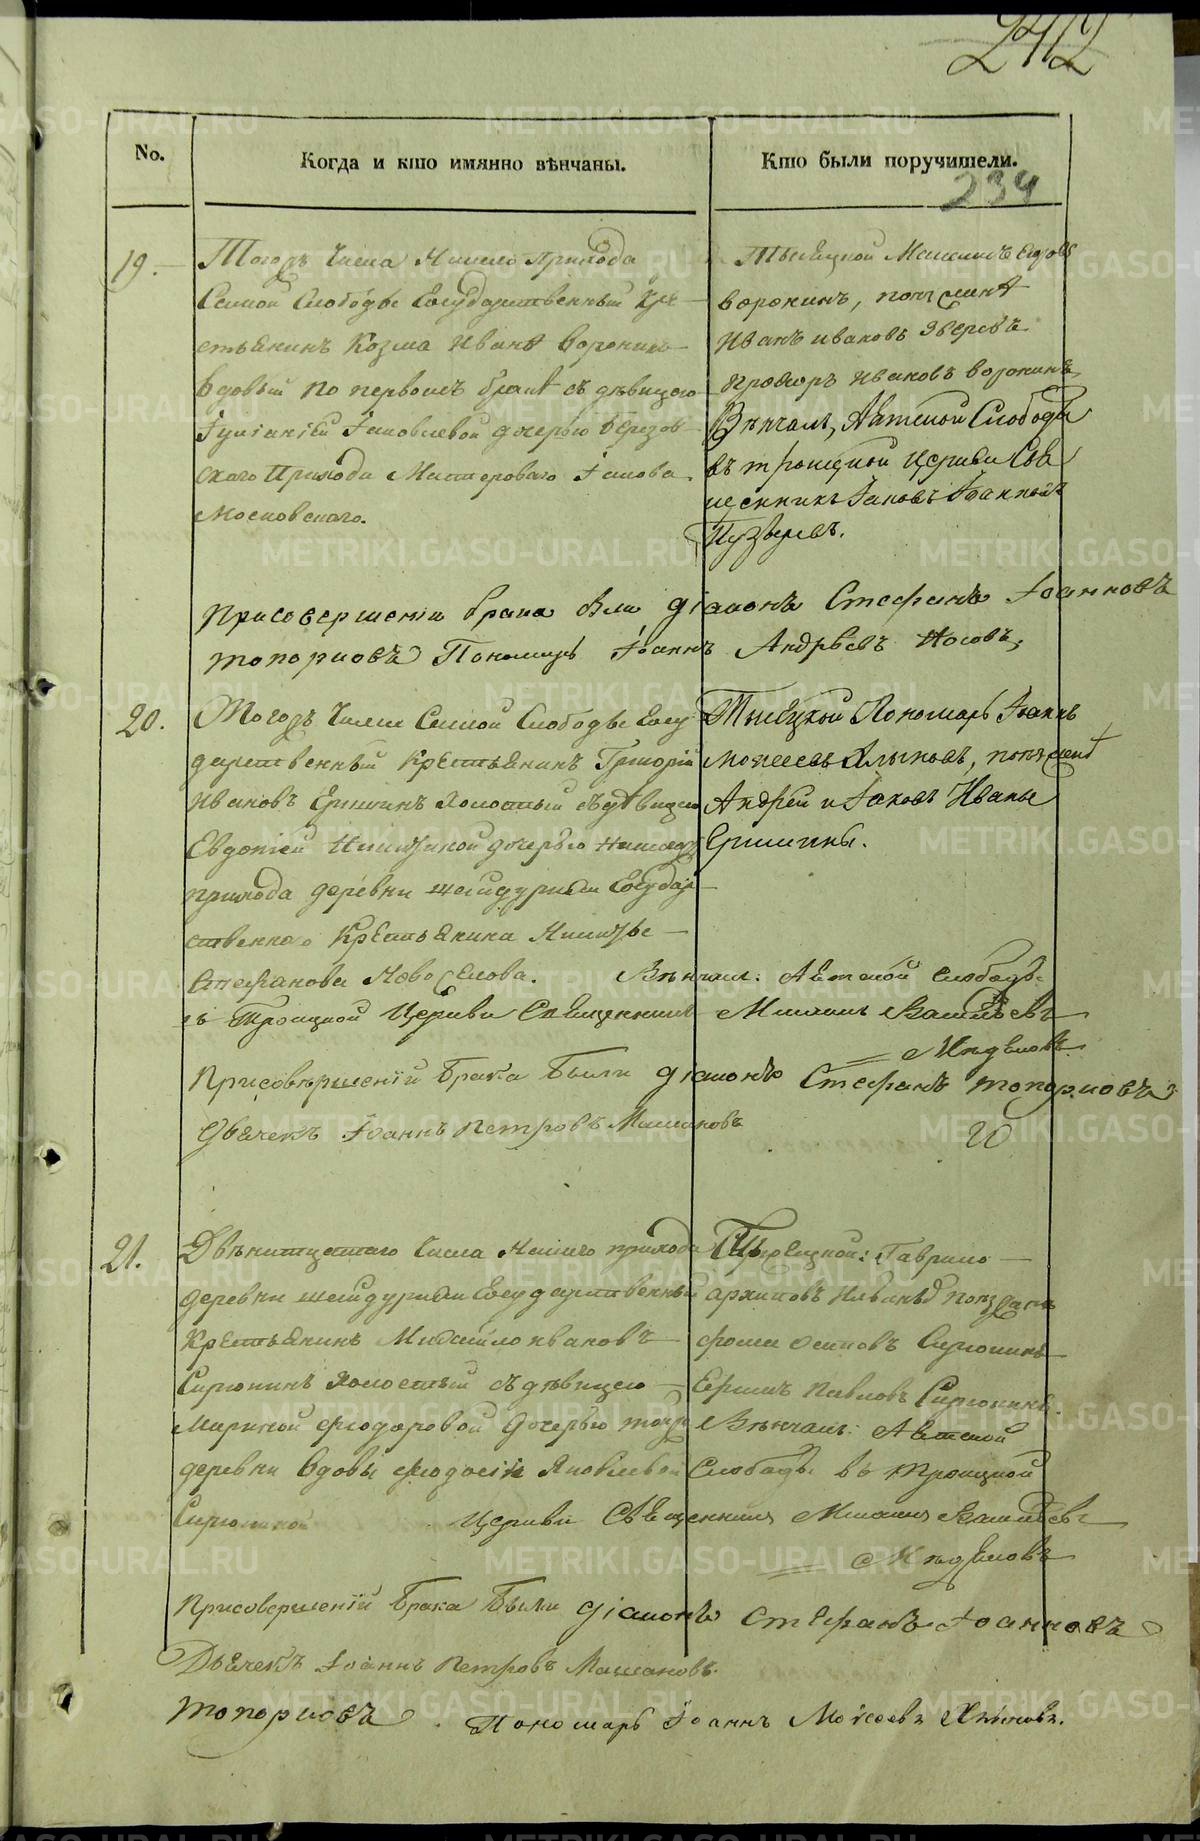 242
No.
Когда и кто имянно вѣнчаны.
Кто были поручители.
234
19.
Тогожъ Числа Нашего прихода
Самой Слободы Государственный Кре
стьянинъ Козма Ивановъ Воронинъ
вдовый по первомъ бракѣ съ дѣвицею
Іуліаніей Іаковлевой дочерью Березов
скаго прихода Мастероваго Іакова
Московскаго.
Тысецкой Егоръ
воронинъ, поѣзжанѣ
Иванъ ивановъ Зверевъ
ивановъ воронинъ
Вѣнчалъ, Аятской Слободы
въ троицкой Церкви Свя
щенникъ Іаковъ Іоанновъ
Пузыревъ.
Присовершеніи брака были діаконъ Стефанъ Іоанновъ
топорковъ Пономарь Іоаннъ Андрѣевъ Носовъ,
20.
Тогожъ Числа Самой Слободы Госу
дарственный Крестьянинъ Григорій
Ивановъ Еришинъ Холостый съ дѣвицею
Евдокіей Никитиной дочерью нашегожъ
прихода деревни Государ
ственнаго Крестьянина Никиты
Стефанова Новоселова.
Тысецкой Пономарь Іоаннъ
моисеевъ Хлыновъ, поѣзжанѣ
Андрей и Іаковъ Иваны
Еришины.
Вѣнчалъ: Аятской слободы
въ Троицкой Церкви Священникъ Михаилъ Васильевъ
Присовѣршеніи Брака Были діаконъ Стефанъ топорковъ
Дьячекъ Іоаннъ Петровъ Машановъ
21.
Двѣнатцатаго Числа Нашего прихода
деревни Государственный
Крестьянинъ Михайло ивановъ
Сирюкинъ Холостый съ дѣвицею
Мариной Фіодоровой дочерью тойже
деревни Вдовы Фіодосіи Яковлевой
Сирюкиной
Тысецкой: Гаврило
архиповъ поѣзжанѣ
Фома осиповъ Сирюкинъ
Павловъ Сирюкинъ.
Вѣнчалъ: Аятской
Слободы въ троицкой
Церкви Священникъ Михаилъ Васильевъ
Присовершеніи Брака Были діаконъ Стефанъ Іоанновъ
Дьячекъ Іоаннъ Петровъ Машановъ.
топорковъ. Пономарь Іоаннъ Моисеевъ Хлыновъ.
METRIKI.GASO-URAL.RU